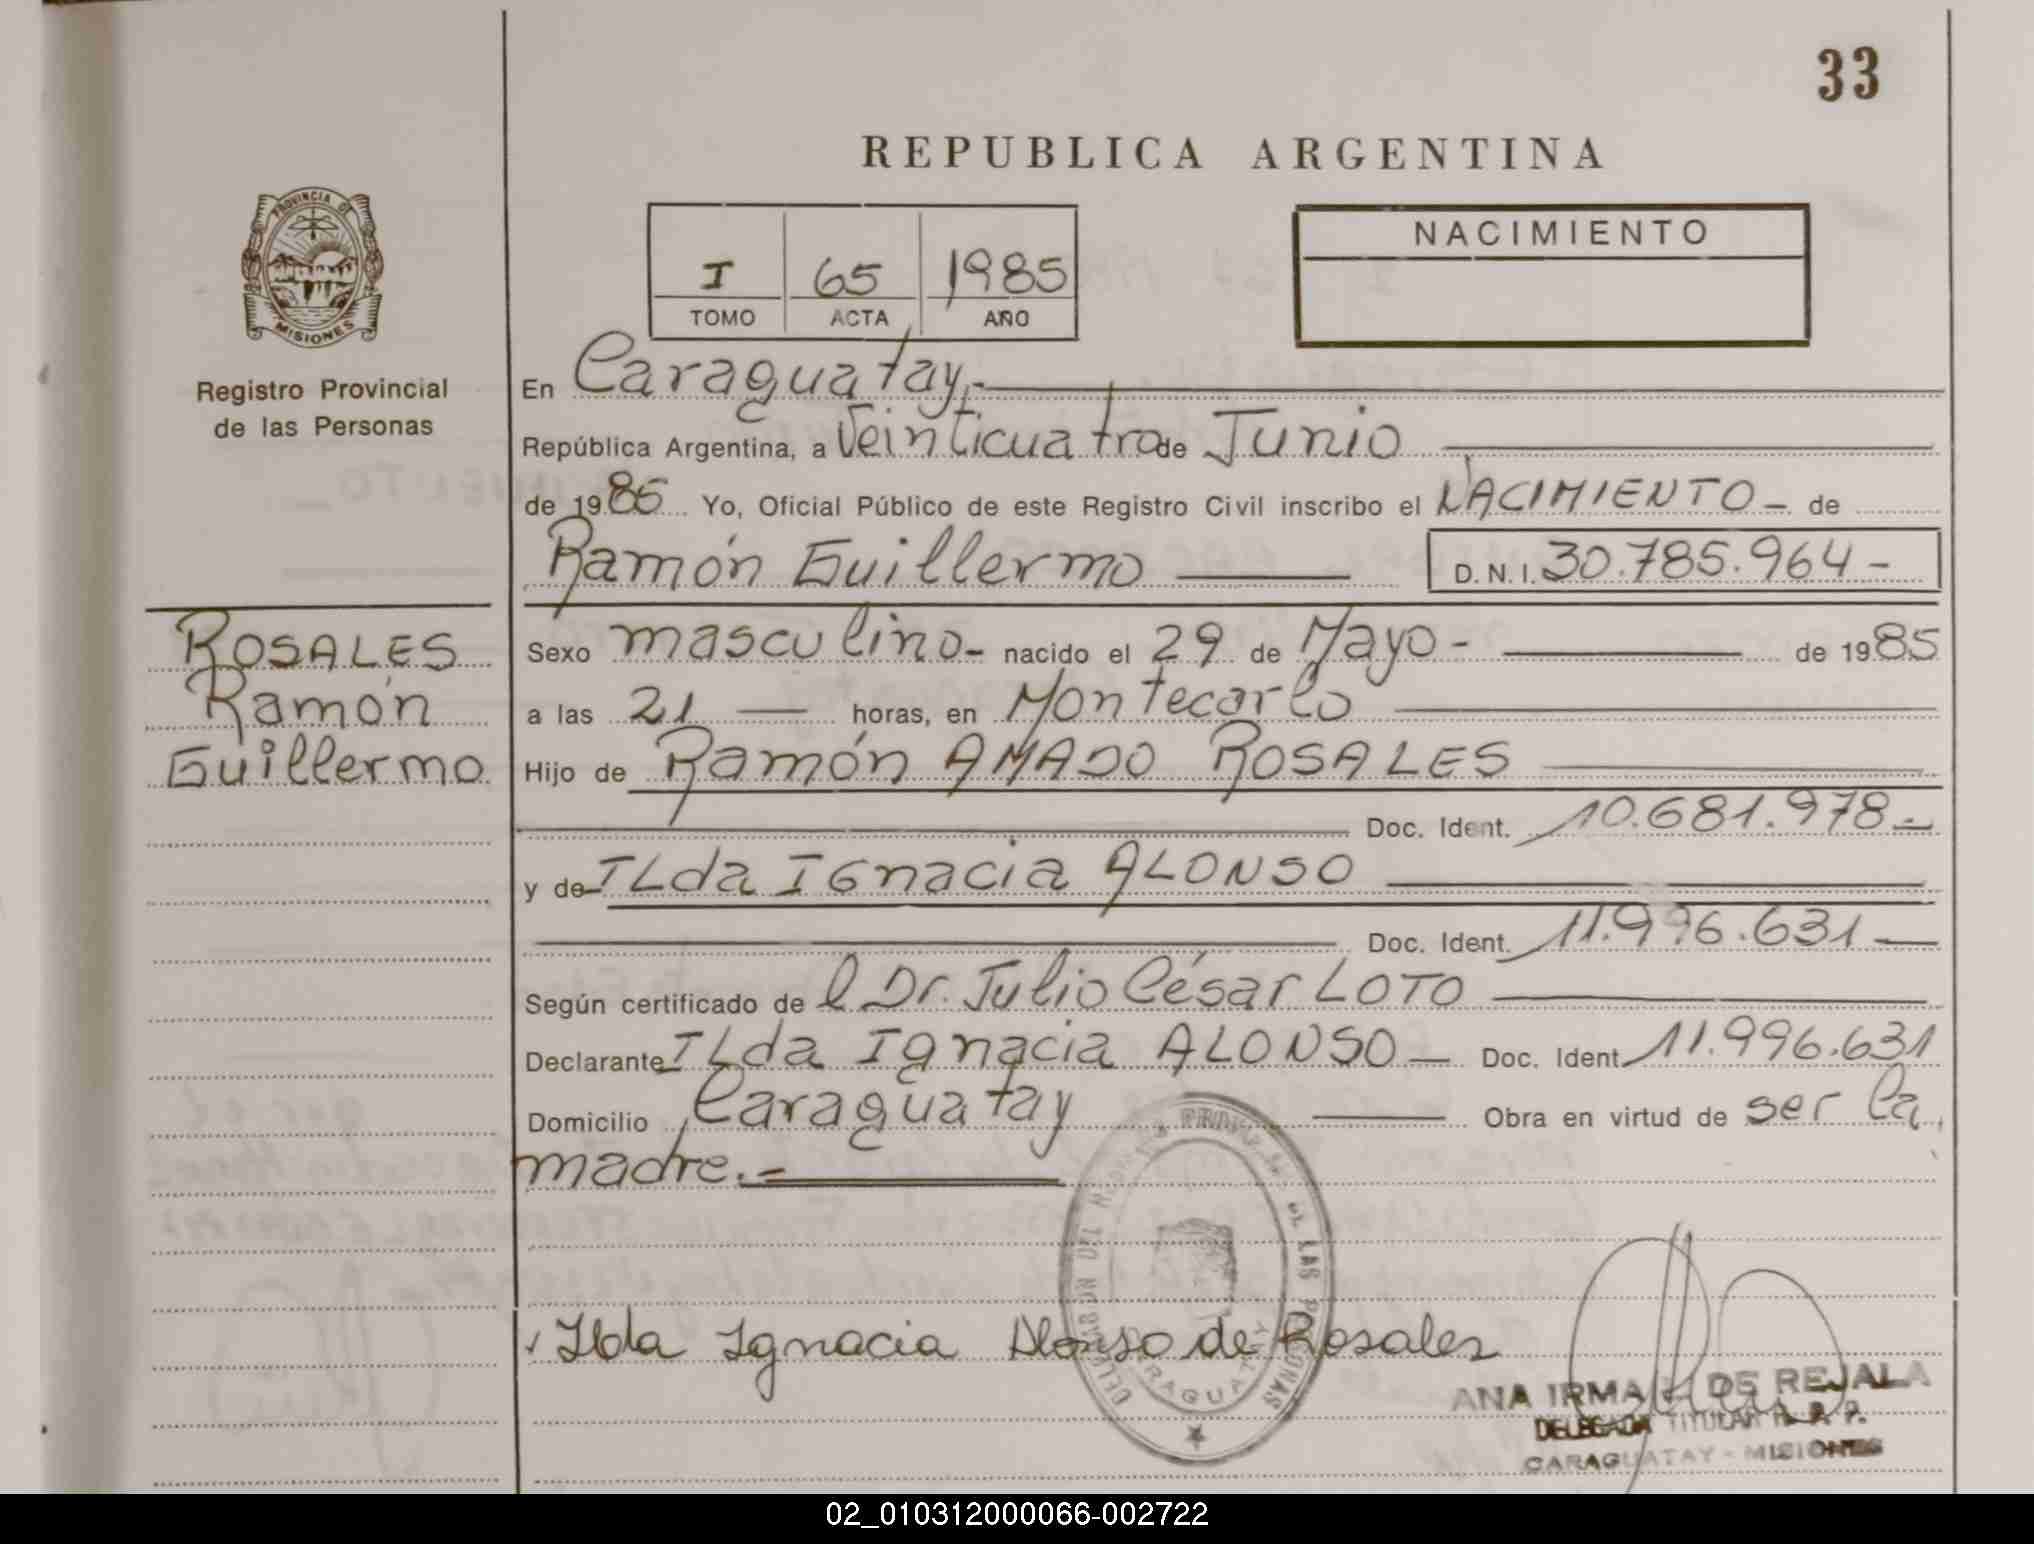 33
REPUBLICA ARGENTINA
PROVINCIA DE
MISIONES
Registro Provincial
de las Personas
I 65 1985
TOMO ACTA AÑO
NACIMIENTO
En Caraguatay,-
República Argentina, a Veinticuatro de Junio
de 1985 Yo, Oficial Público de este Registro Civil inscribo el NACIMIENTO - de
Ramón Guillermo D.N.I. 30.785.964-
ROSALES
Ramón
Guillermo
Sexo masculino- nacido el 29 de Mayo- de 1985
a las 21 — horas, en Montecarlo
Hijo de Ramón AMADO ROSALES
Doc. Ident. 10.681.978-
y de ILda IGnacia ALONSO
Doc. Ident. 11.996.631-
Según certificado de l Dr. Julio César LOTO
Declarante ILda Ignacia ALONSO — Doc. Ident 11.996.631
Domicilio Caraguatay Obra en virtud de ser la
madre.-
DELEGACION DEL REGISTRO PROVINCIAL DE LAS PERSONAS
CARAGUATAY
Ilda Ignacia Alonso de Rosales
ANA IRMA DE REJALA
DELEGADA TITULAR R. P. P.
CARAGUATAY - MISIONES
02_010312000066-002722